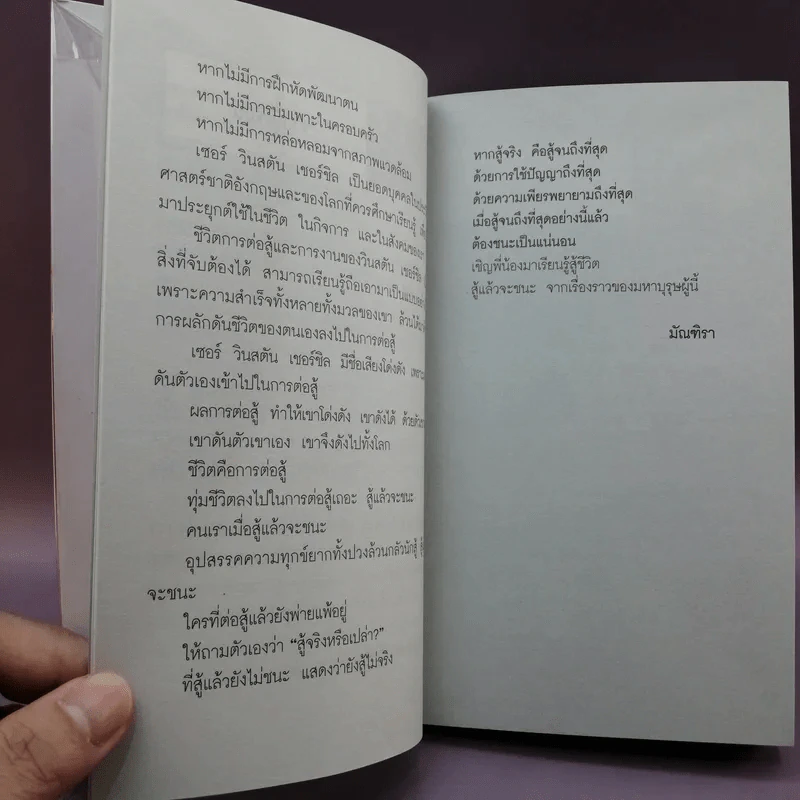 หากไม่มีการฝึกหัดพัฒนาตน
หากไม่มีการบ่มเพาะในครอบครัว
หากไม่มีการหล่อหลอมจากสภาพแวดล้อม
เซอร์ วินสตัน เชอร์ชิล เป็นยอดบุคคลใน
ศาสตร์ชาติอังกฤษและของโลกที่ควรศึกษาเรียนรู้
มาประยุกต์ใช้ในชีวิต ในกิจการ และในสังคมของ
ชีวิตการต่อสู้และการงานของวินสตัน เชอร์ชิล
สิ่งที่จับต้องได้ สามารถเรียนรู้ถือเอามาเป็น
เพราะความสำเร็จทั้งหลายทั้งมวลของเขา ล้วน
การผลักดันชีวิตของตนเองลงไปในการต่อสู้
เซอร์ วินสตัน เชอร์ชิล มีชื่อเสียงโด่งดัง
ดันตัวเองเข้าไปในการต่อสู้
ผลการต่อสู้ ทำให้เขาโด่งดัง เขาดังได้
เขาดันตัวเขาเอง เขาจึงดังไปทั้งโลก
ชีวิตคือการต่อสู้
ทุ่มชีวิตลงไปในการต่อสู้เถอะ สู้แล้วจะชนะ
คนเราเมื่อสู้แล้วจะชนะ
อุปสรรคความทุกข์ยากทั้งปวงล้วนกลัวนักสู้
จะชนะ
ใครที่ต่อสู้แล้วยังพ่ายแพ้อยู่
ให้ถามตัวเองว่า “สู้จริงหรือเปล่า?”
ที่สู้แล้วยังไม่ชนะ แสดงว่ายังสู้ไม่จริง
หากสู้จริง คือสู้จนถึงที่สุด
ด้วยการใช้ปัญญาถึงที่สุด
ด้วยความเพียรพยายามถึงที่สุด
เมื่อสู้จนถึงที่สุดอย่างนี้แล้ว
ต้องชนะเป็นแน่นอน
เชิญพี่น้องมาเรียนรู้สู้ชีวิต
สู้แล้วจะชนะ จากเรื่องราวของมหาบุรุษผู้นี้
มัณฑิรา